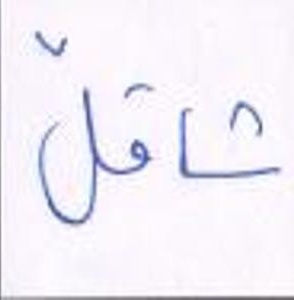 شاقلّ